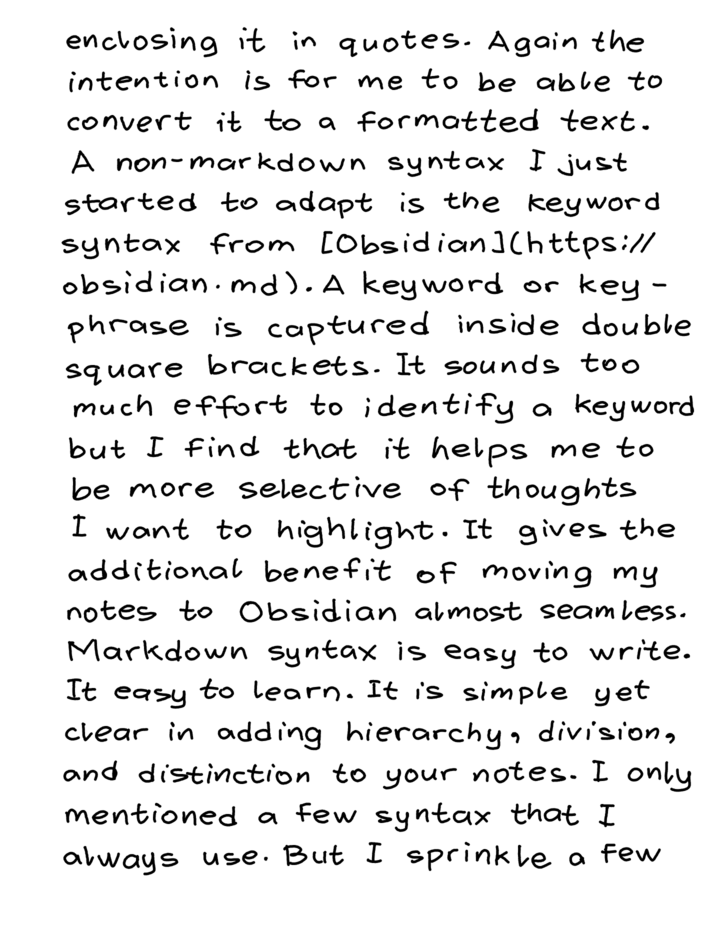 enclosing it in quotes. Again the
intention is for me to be able to
convert it to a formatted text.
A non-markdown syntax I just
started to adapt is the keyword
syntax from [Obsidian](https://
obsidian.md). A keyword or key-
phrase is captured inside double
square brackets. It sounds too
much effort to identify a keyword
but I find that it helps me to
be more selective of thoughts
I want to highlight. It gives the
additional benefit of moving my
notes to Obsidian almost seamless.
Markdown syntax is easy to write.
It easy to learn. It is simple yet
clear in adding hierarchy, division,
and distinction to your notes. I only
mentioned a few syntax that I
always use. But I sprinkle a few